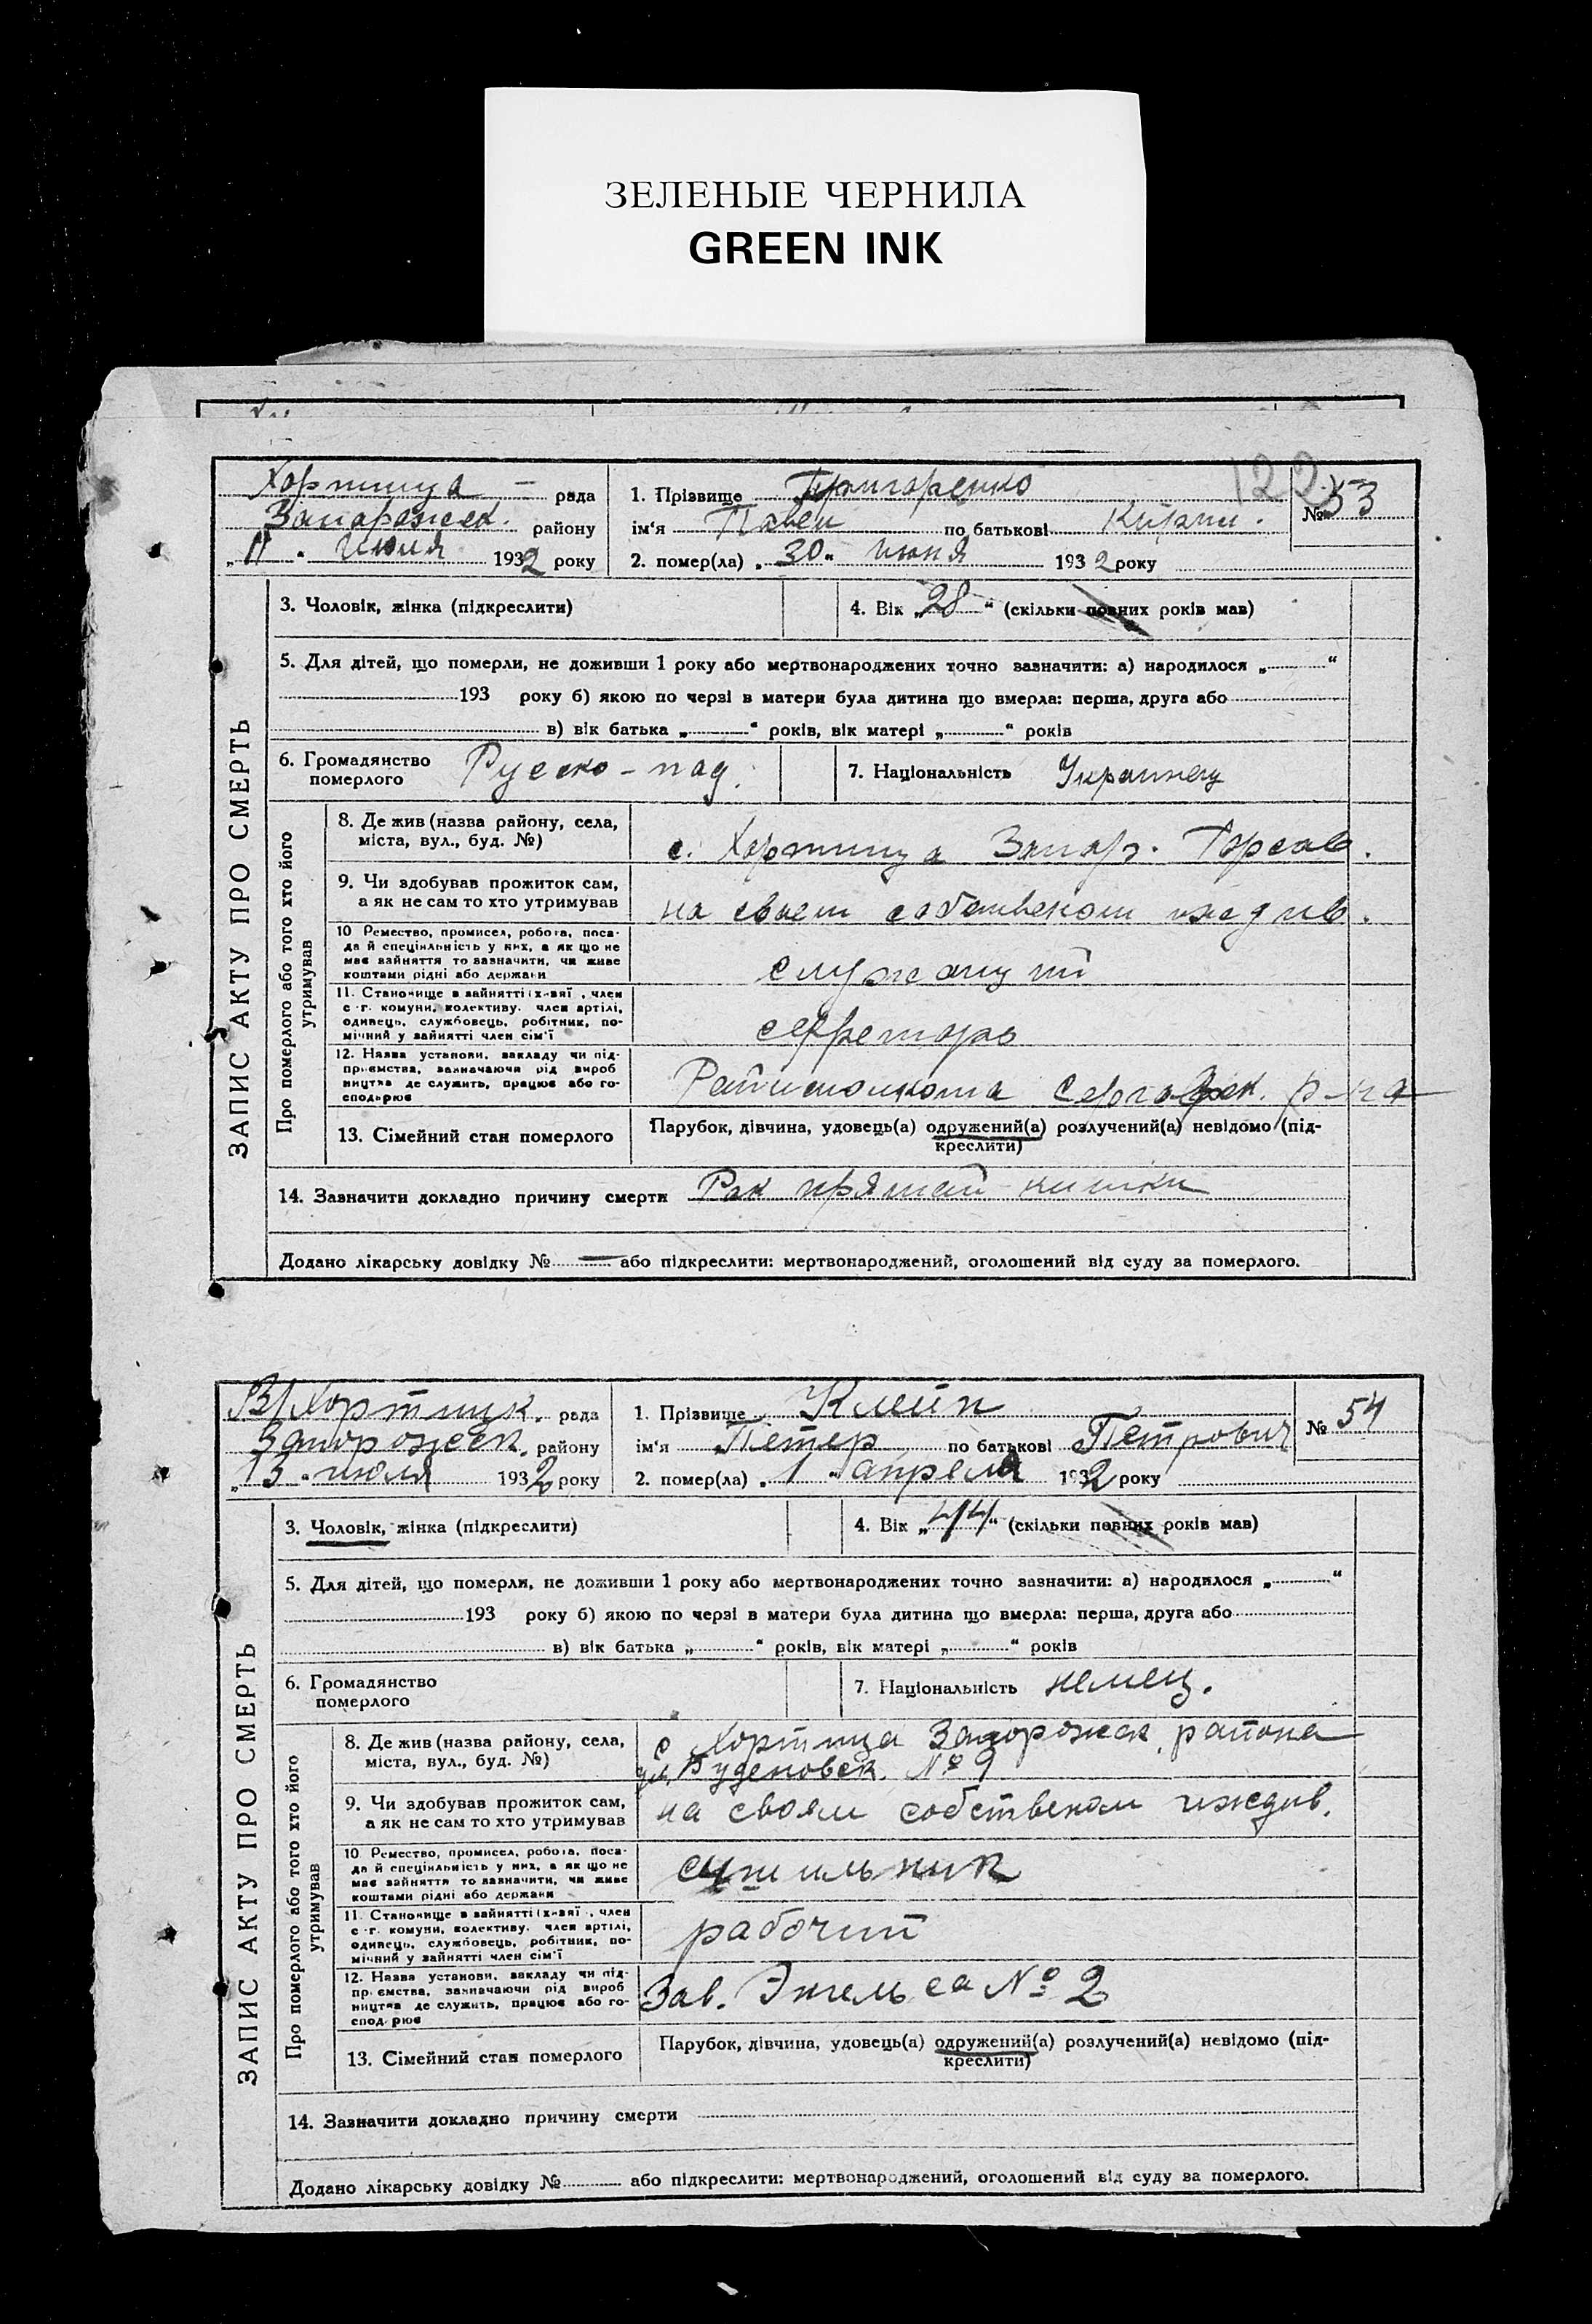 ЗЕЛЕНЫЕ ЧЕРНИЛА
GREEN INK
122
ЗАПИС АКТУ ПРО СМЕРТЬ
Хортица – рада
Запорожск. району
„11“ июля 1932 року
1. Прізвище Григоренко
ім‘я Павел по батькові
№ 53
2. помер(ла) „30“ июня 1932 року
3. Чоловік, жінка (підкреслити)
4. Вік „28“ (скільки повних років мав)
5. Для дітей, що померли, не доживши 1 року або мертвонароджених точно зазначити: а) народилося „ “
193 року б) якою по черзі в матери була дитина що вмерла: перша, друга або
в) вік батька „ “ років, вік матері „ “ років
6. Громадянство
померлого
Руско-под.
7. Національність Украинец
Про померлого або того хто його
утримував
8. Де жив (назва району, села,
міста, вул., буд. №)
с. Хортица Запор. Горсов.
9. Чи здобував прожиток сам,
а як не сам то хто утримував
на своем собственом иждив.
10 Ремество, промисел, робота, поса-
да й спеціяльність у них, а як що не
має зайняття то зазначити, чи живе
коштами рідні або держави
служащий
11. Становище в зайнятті (х-вяї , член
с.-г. комуни, колективу, член артілі,
одинець, службовець, робітник, по-
мічний у зайнятті член сім'ї
секретарь
12. Назва установи, закладу чи під-
приємства, зазначаючи рід вироб
ництва де служить, працює або го-
сподарює
Райисполкома р-на
13. Сімейний стан померлого
Парубок, дівчина, удовець(а) одружений(а) розлучений(а) невідомо (під-
креслити)
14. Зазначити докладно причину смерти Рак прямой кишки
Додано лікарську довідку № — або підкреслити: мертвонароджений, оголошений від суду за померлого.
ЗАПИС АКТУ ПРО СМЕРТЬ
В/Хортицк. рада
Запорожск. району
„13“ июля 1932 року
1. Прізвище Клейн
ім‘я Петер по батькові Петрович
№ 54
2. помер(ла) „1“ апреля 1932 року
3. Чоловік, жінка (підкреслити)
4. Вік „44“ (скільки повних років мав)
5. Для дітей, що померли, не доживши 1 року або мертвонароджених точно зазначити: а) народилося „ “
193 року б) якою по черзі в матери була дитина що вмерла: перша, друга або
в) вік батька „ “ років, вік матері „ “ років
6. Громадянство
померлого
7. Національність немец.
Про померлого або того хто його
утримував
8. Де жив (назва району, села,
міста, вул., буд. №)
с Хортица Запорожск. района
ул. Буденовск. № 9
9. Чи здобував прожиток сам,
а як не сам то хто утримував
на своям собственом иждив.
10 Ремество, промисел, робота, поса-
да й спеціяльність у них, а як що не
має зайняття то зазначити, чи живе
коштами рідні або держави
сушильник
11. Становище в зайнятті (х-вяї , член
с.-г. комуни, колективу, член артілі,
одинець, службовець, робітник, по-
мічний у зайнятті член сім'ї
рабочий
12. Назва установи, закладу чи під-
приємства, зазначаючи рід вироб
ництва де служить, працює або го-
сподарює
Зав. Энгельса № 2
13. Сімейний стан померлого
Парубок, дівчина, удовець(а) одружений(а) розлучений(а) невідомо (під-
креслити)
14. Зазначити докладно причину смерти
Додано лікарську довідку № або підкреслити: мертвонароджений, оголошений від суду за померлого.